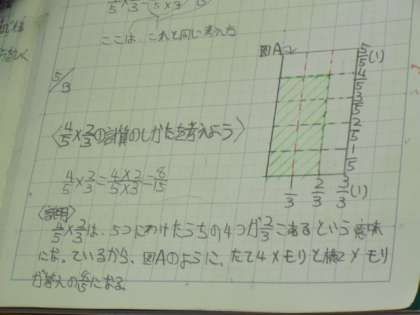 ここは、これと同じ考え方
5/3
図A
5/5(1)
4/5
3/5
2/5
1/5
1/3 2/3 3/3(1)
〈4/5×2/3の計算のしかたを考えよう〉
4/5×2/3=4×2/5×3=8/15
〈説明〉
4/5×2/3は、5つにわけたうちの4つが2/3こあるという意味
になっているから、図Aのように、たて4メモリと横2メモリ
が答えの8/15になる。